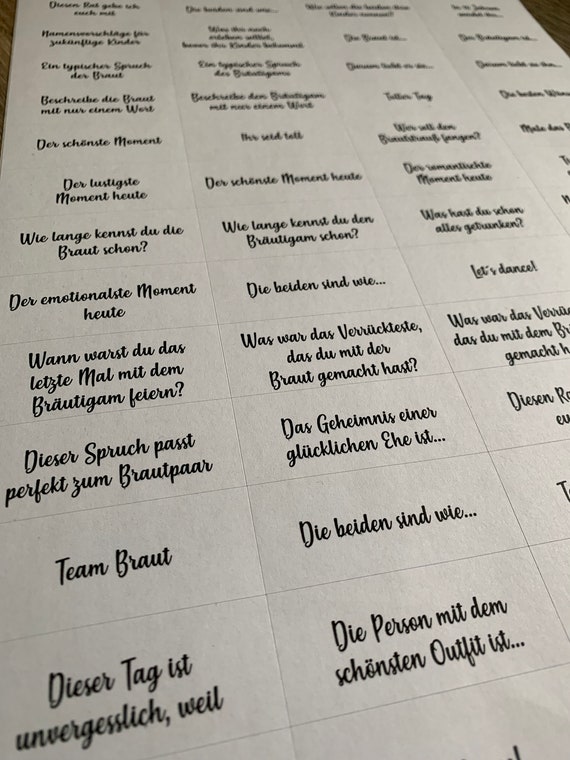 Diesen Rat gebe ich
euch mit
Die beiden sind wie...
Namensvorschläge für
zukünftige Kinder
Was ihr noch
erleben solltet,
bevor ihr Kinder bekommt
Die Braut ist...
Der Bräutigam ist...
Ein typischer Spruch
der Braut
Ein typischer Spruch
des Bräutigams
Beschreibe die Braut
mit nur einem Wort
Beschreibe den Bräutigam
mit nur einem Wort
Toller Tag
Die beiden
Der schönste Moment
Ihr seid toll
Wer soll den
Brautstrauß fangen?
Male das
Der lustigste
Moment heute
Der schönste Moment heute
Der romantischte
Moment heute
Wie lange kennst du die
Braut schon?
Wie lange kennst du den
Bräutigam schon?
Was hast du schon
alles getrunken?
Der emotionalste Moment
heute
Die beiden sind wie...
Let's dance!
Wann warst du das
letzte Mal mit dem
Bräutigam feiern?
Was war das Verrückteste,
das du mit der
Braut gemacht hast?
Was war das
das du mit dem
gemacht
Dieser Spruch passt
perfekt zum Brautpaar
Das Geheimnis einer
glücklichen Ehe ist...
Diesen
Team Braut
Die beiden sind wie...
Dieser Tag ist
unvergesslich, weil
Die Person mit dem
schönsten Outfit ist...